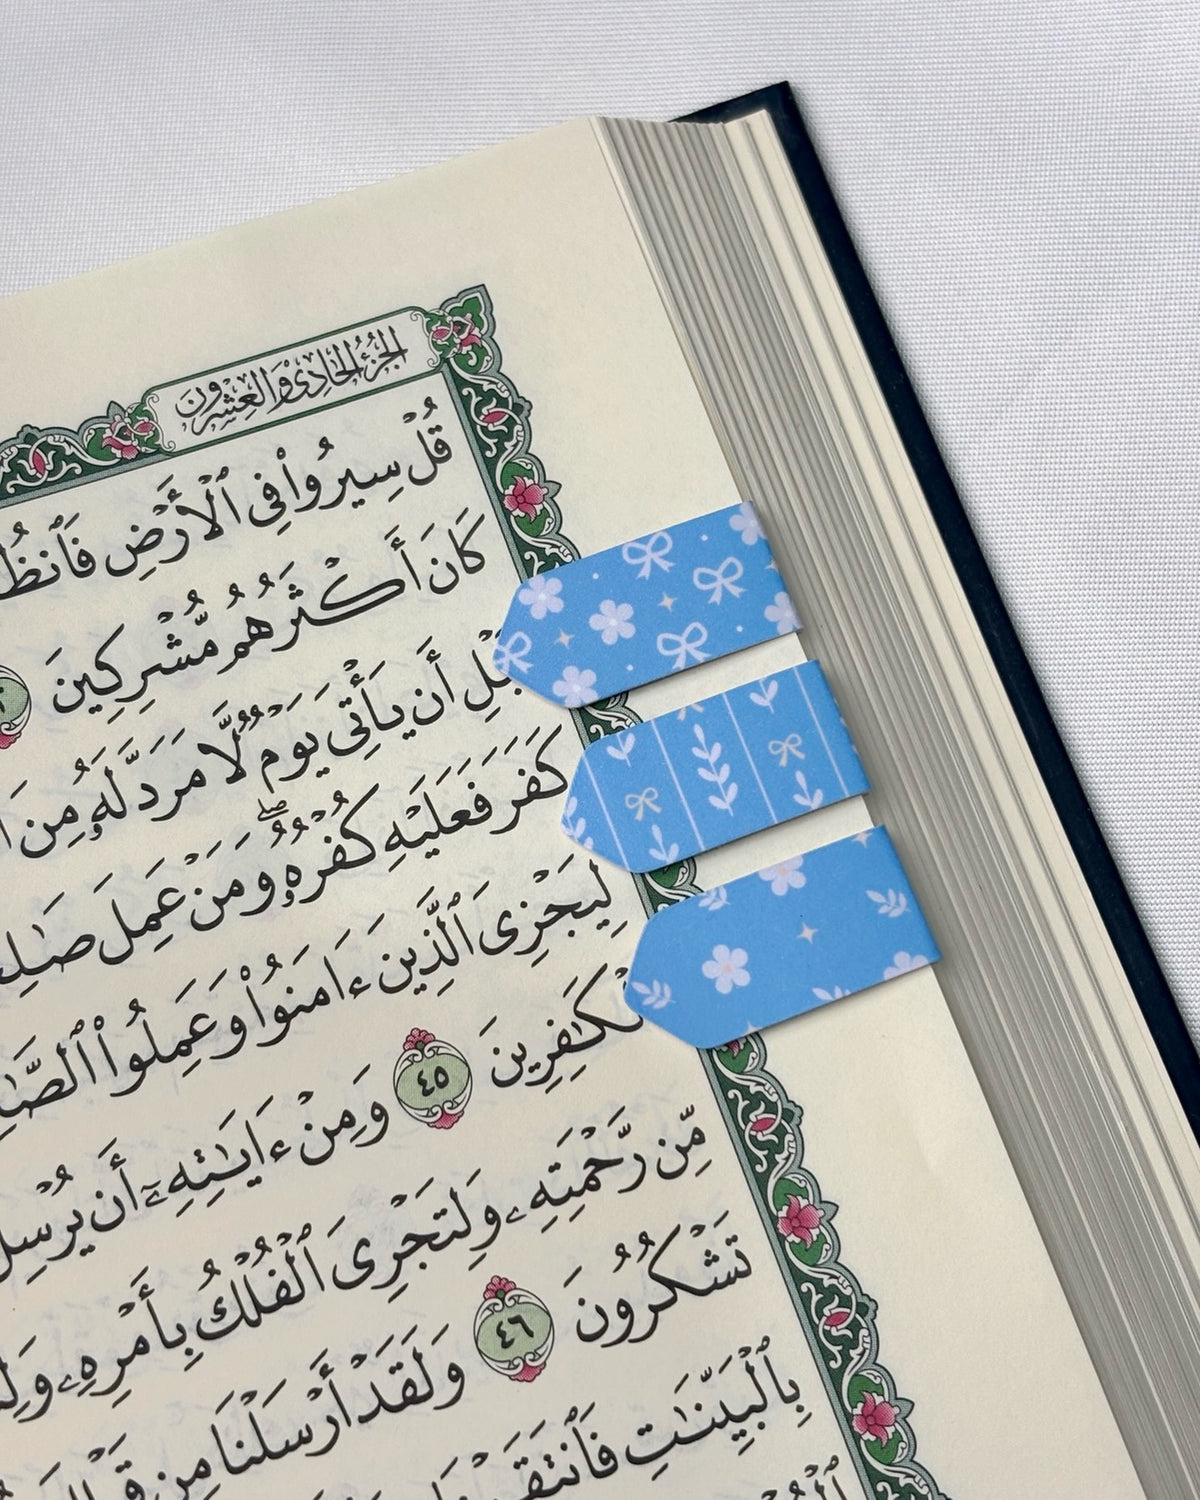 الجزء الحادي والعشرون
قُلْ سِيرُوا۟ فِى ٱلْأَرْضِ فَٱنظُ
كَانَ أَكْثَرُهُم مُّشْرِكِينَ
أَن يَأْتِىَ يَوْمٌ لَّا مَرَدَّ لَهُۥ مِنَ
كَفَرَ فَعَلَيْهِ كُفْرُهُۥ ۖ وَمَنْ عَمِلَ صَـٰلِ
لِيَجْزِىَ ٱلَّذِينَ ءَامَنُوا۟ وَعَمِلُوا۟ ٱلصَّـٰ
لْكَـٰفِرِينَ ٤٥ وَمِنْ ءَايَـٰتِهِۦٓ أَن يُرْسِلَ
مِّن رَّحْمَتِهِۦ وَلِتَجْرِىَ ٱلْفُلْكُ بِأَمْرِهِۦ وَلِ
تَشْكُرُونَ ٤٦ وَلَقَدْ أَرْسَلْنَا مِن
بِٱلْبَيِّنَـٰتِ فَٱنتَقَ